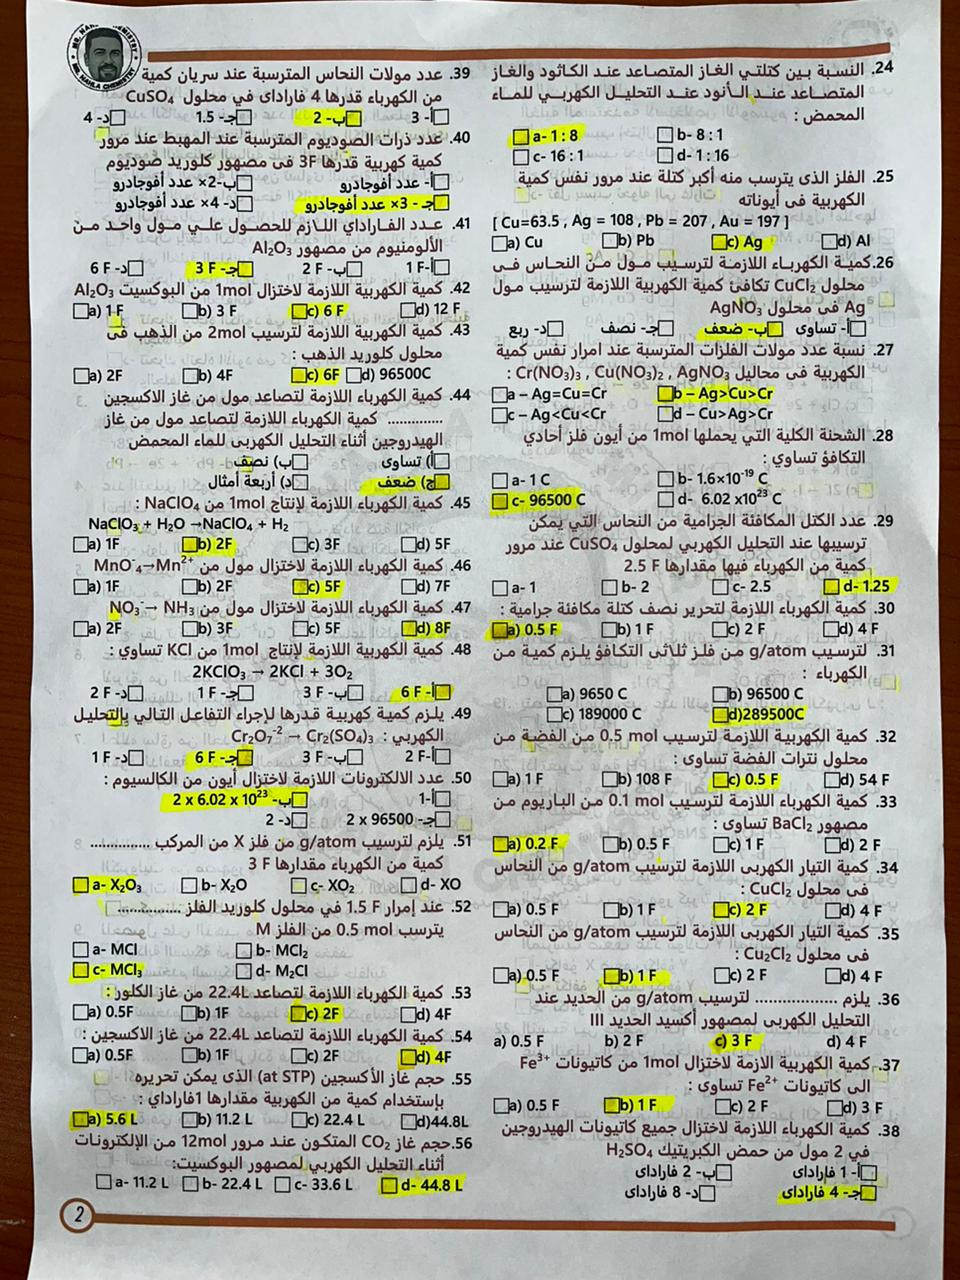 24. النسبة بين كتلتي الغاز المتصاعد عند الكاثود والغاز
المتصاعد عند الأنود عند التحليل الكهربي للماء
المحمض :
a- 1 : 8 b- 8 : 1
c- 16 : 1 d- 1 : 16
25. الفلز الذى يترسب منه أكبر كتلة عند مرور نفس كمية
الكهربية فى أيوناته
[ Cu=63.5 , Ag = 108 , Pb = 207 , Au = 197 ]
a) Cu b) Pb c) Ag d) Al
26. كمية الكهرباء اللازمة لترسيب مول من النحاس فى
محلول CuCl₂ تكافئ كمية الكهربية اللازمة لترسيب مول
Ag فى محلول AgNO₃
أ- تساوى ب- ضعف جـ- نصف د- ربع
27. نسبة عدد مولات الفلزات المترسبة عند امرار نفس كمية
الكهربية فى محاليل Cr(NO₃)₃ , Cu(NO₃)₂ , AgNO₃ :
a – Ag=Cu=Cr b – Ag>Cu>Cr
c – Ag<Cu<Cr d – Cu>Ag>Cr
28. الشحنة الكلية التي يحملها 1mol من أيون فلز أحادي
التكافؤ تساوي :
a- 1 C b- 1.6×10⁻¹⁹ C
c- 96500 C d- 6.02 x10²³ C
29. عدد الكتل المكافئة الجرامية من النحاس التي يمكن
ترسيبها عند التحليل الكهربي لمحلول CuSO₄ عند مرور
كمية من الكهرباء فيها مقدارها 2.5 F
a- 1 b- 2 c- 2.5 d- 1.25
30. كمية الكهرباء اللازمة لتحرير نصف كتلة مكافئة جرامية :
a) 0.5 F b) 1 F c) 2 F d) 4 F
31. لترسيب g/atom من فلز ثلاثى التكافؤ يلزم كمية من
الكهرباء :
a) 9650 C b) 96500 C
c) 189000 C d)289500C
32. كمية الكهربية اللازمة لترسيب 0.5 mol من الفضة من
محلول نترات الفضة تساوى :
a) 1 F b) 108 F c) 0.5 F d) 54 F
33. كمية الكهرباء اللازمة لترسيب 0.1 mol من الباريوم من
مصهور BaCl₂ تساوى :
a) 0.2 F b) 0.5 F c) 1 F d) 2 F
34. كمية التيار الكهربى اللازمة لترسيب g/atom من النحاس
فى محلول CuCl₂ :
a) 0.5 F b) 1 F c) 2 F d) 4 F
35. كمية التيار الكهربى اللازمة لترسيب g/atom من النحاس
فى محلول Cu₂Cl₂ :
a) 0.5 F b) 1 F c) 2 F d) 4 F
36. يلزم ............... لترسيب g/atom من الحديد عند
التحليل الكهربى لمصهور أكسيد الحديد III
a) 0.5 F b) 2 F c) 3 F d) 4 F
37. كمية الكهربية الازمة لاختزال 1mol من كاتيونات Fe³⁺
الى كاتيونات Fe²⁺ تساوى :
a) 0.5 F b) 1 F c) 2 F d) 3 F
38. كمية الكهرباء اللازمة لاختزال جميع كاتيونات الهيدروجين
في 2 مول من حمض الكبريتيك H₂SO₄
أ- 1 فاراداى ب- 2 فاراداى
جـ- 4 فاراداى د- 8 فاراداى
39. عدد مولات النحاس المترسبة عند سريان كمية
من الكهرباء قدرها 4 فاراداى في محلول CuSO₄
أ- 3 ب- 2 جـ- 1.5 د- 4
40. عدد ذرات الصوديوم المترسبة عند المهبط عند مرور
كمية كهربية قدرها 3F فى مصهور كلوريد صوديوم
أ- عدد أفوجادرو ب-2× عدد أفوجادرو
جـ - 3× عدد أفوجادرو د- 4× عدد أفوجادرو
41. عدد الفاراداي اللازم للحصول علي مول واحد من
الألومنيوم من مصهور Al₂O₃
أ- 1 F ب- 2 F جـ- 3 F د- 6 F
42. كمية الكهربية اللازمة لاختزال 1mol من البوكسيت Al₂O₃
a) 1 F b) 3 F c) 6 F d) 12 F
43. كمية الكهربية اللازمة لترسيب 2mol من الذهب فى
محلول كلوريد الذهب :
a) 2F b) 4F c) 6F d) 96500C
44. كمية الكهرباء اللازمة لتصاعد مول من غاز الاكسجين
.............. كمية الكهرباء اللازمة لتصاعد مول من غاز
الهيدروجين أثناء التحليل الكهربى للماء المحمض
أ) تساوى ب) نصف
ج) ضعف د) أربعة أمثال
45. كمية الكهرباء اللازمة لإنتاج 1mol من NaClO₄ :
NaClO₃ + H₂O →NaClO₄ + H₂
a) 1F b) 2F c) 3F d) 5F
46. كمية الكهرباء اللازمة لاختزال مول من MnO⁻₄→Mn²⁺
a) 1F b) 2F c) 5F d) 7F
47. كمية الكهرباء اللازمة لاختزال مول من NO₃⁻→ NH₃
a) 2F b) 3F c) 5F d) 8F
48. كمية الكهرباء اللازمة لإنتاج 1mol من KCl تساوي :
2KClO₃ → 2KCl + 3O₂
أ- 6 F ب- 3 F جـ- 1 F د- 2 F
49. يلزم كمية كهربية قدرها لإجراء التفاعل التالي بالتحليل
الكهربي : Cr₂O₇⁻² → Cr₂(SO₄)₃
أ- 2 F ب- 3 F جـ- 6 F د- 1 F
50. عدد الالكترونات اللازمة لاختزال أيون من الكالسيوم :
أ-1 ب- 2 x 6.02 x 10²³
جـ- 2 x 96500 د- 2
51. يلزم لترسيب g/atom من فلز X من المركب ..............
كمية من الكهرباء مقدارها 3 F
a- X₂O₃ b- X₂O c- XO₂ d- XO
52. عند إمرار 1.5 F في محلول كلوريد الفلز ..............
يترسب 0.5 mol من الفلز M
a- MCl b- MCl₂
c- MCl₃ d- M₂Cl
53. كمية الكهرباء اللازمة لتصاعد 22.4L من غاز الكلور :
a) 0.5F b) 1F c) 2F d) 4F
54. كمية الكهرباء اللازمة لتصاعد 22.4L من غاز الاكسجين :
a) 0.5F b) 1F c) 2F d) 4F
55. حجم غاز الأكسجين (at STP) الذى يمكن تحريره
بإستخدام كمية من الكهربية مقدارها 1فاراداي :
a) 5.6 L b) 11.2 L c) 22.4 L d)44.8L
56. حجم غاز CO₂ المتكون عند مرور 12mol من الإلكترونات
أثناء التحليل الكهربي لمصهور البوكسيت:
a- 11.2 L b- 22.4 L c- 33.6 L d- 44.8 L
2